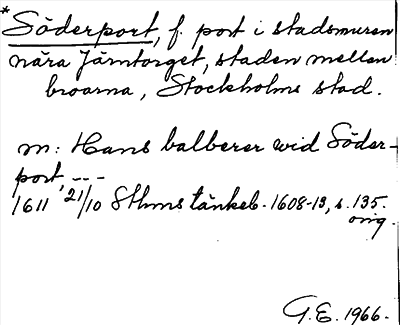 * Söderport, f. port i stadsmuren
nära Järntorget, staden mellan
broarna, Stockholms stad.
m: Hans balberer wid Söder-
port, ---
1611 21/10 Sthms tänkeb. 1608-13, s. 135.
orig.
G.E. 1966.